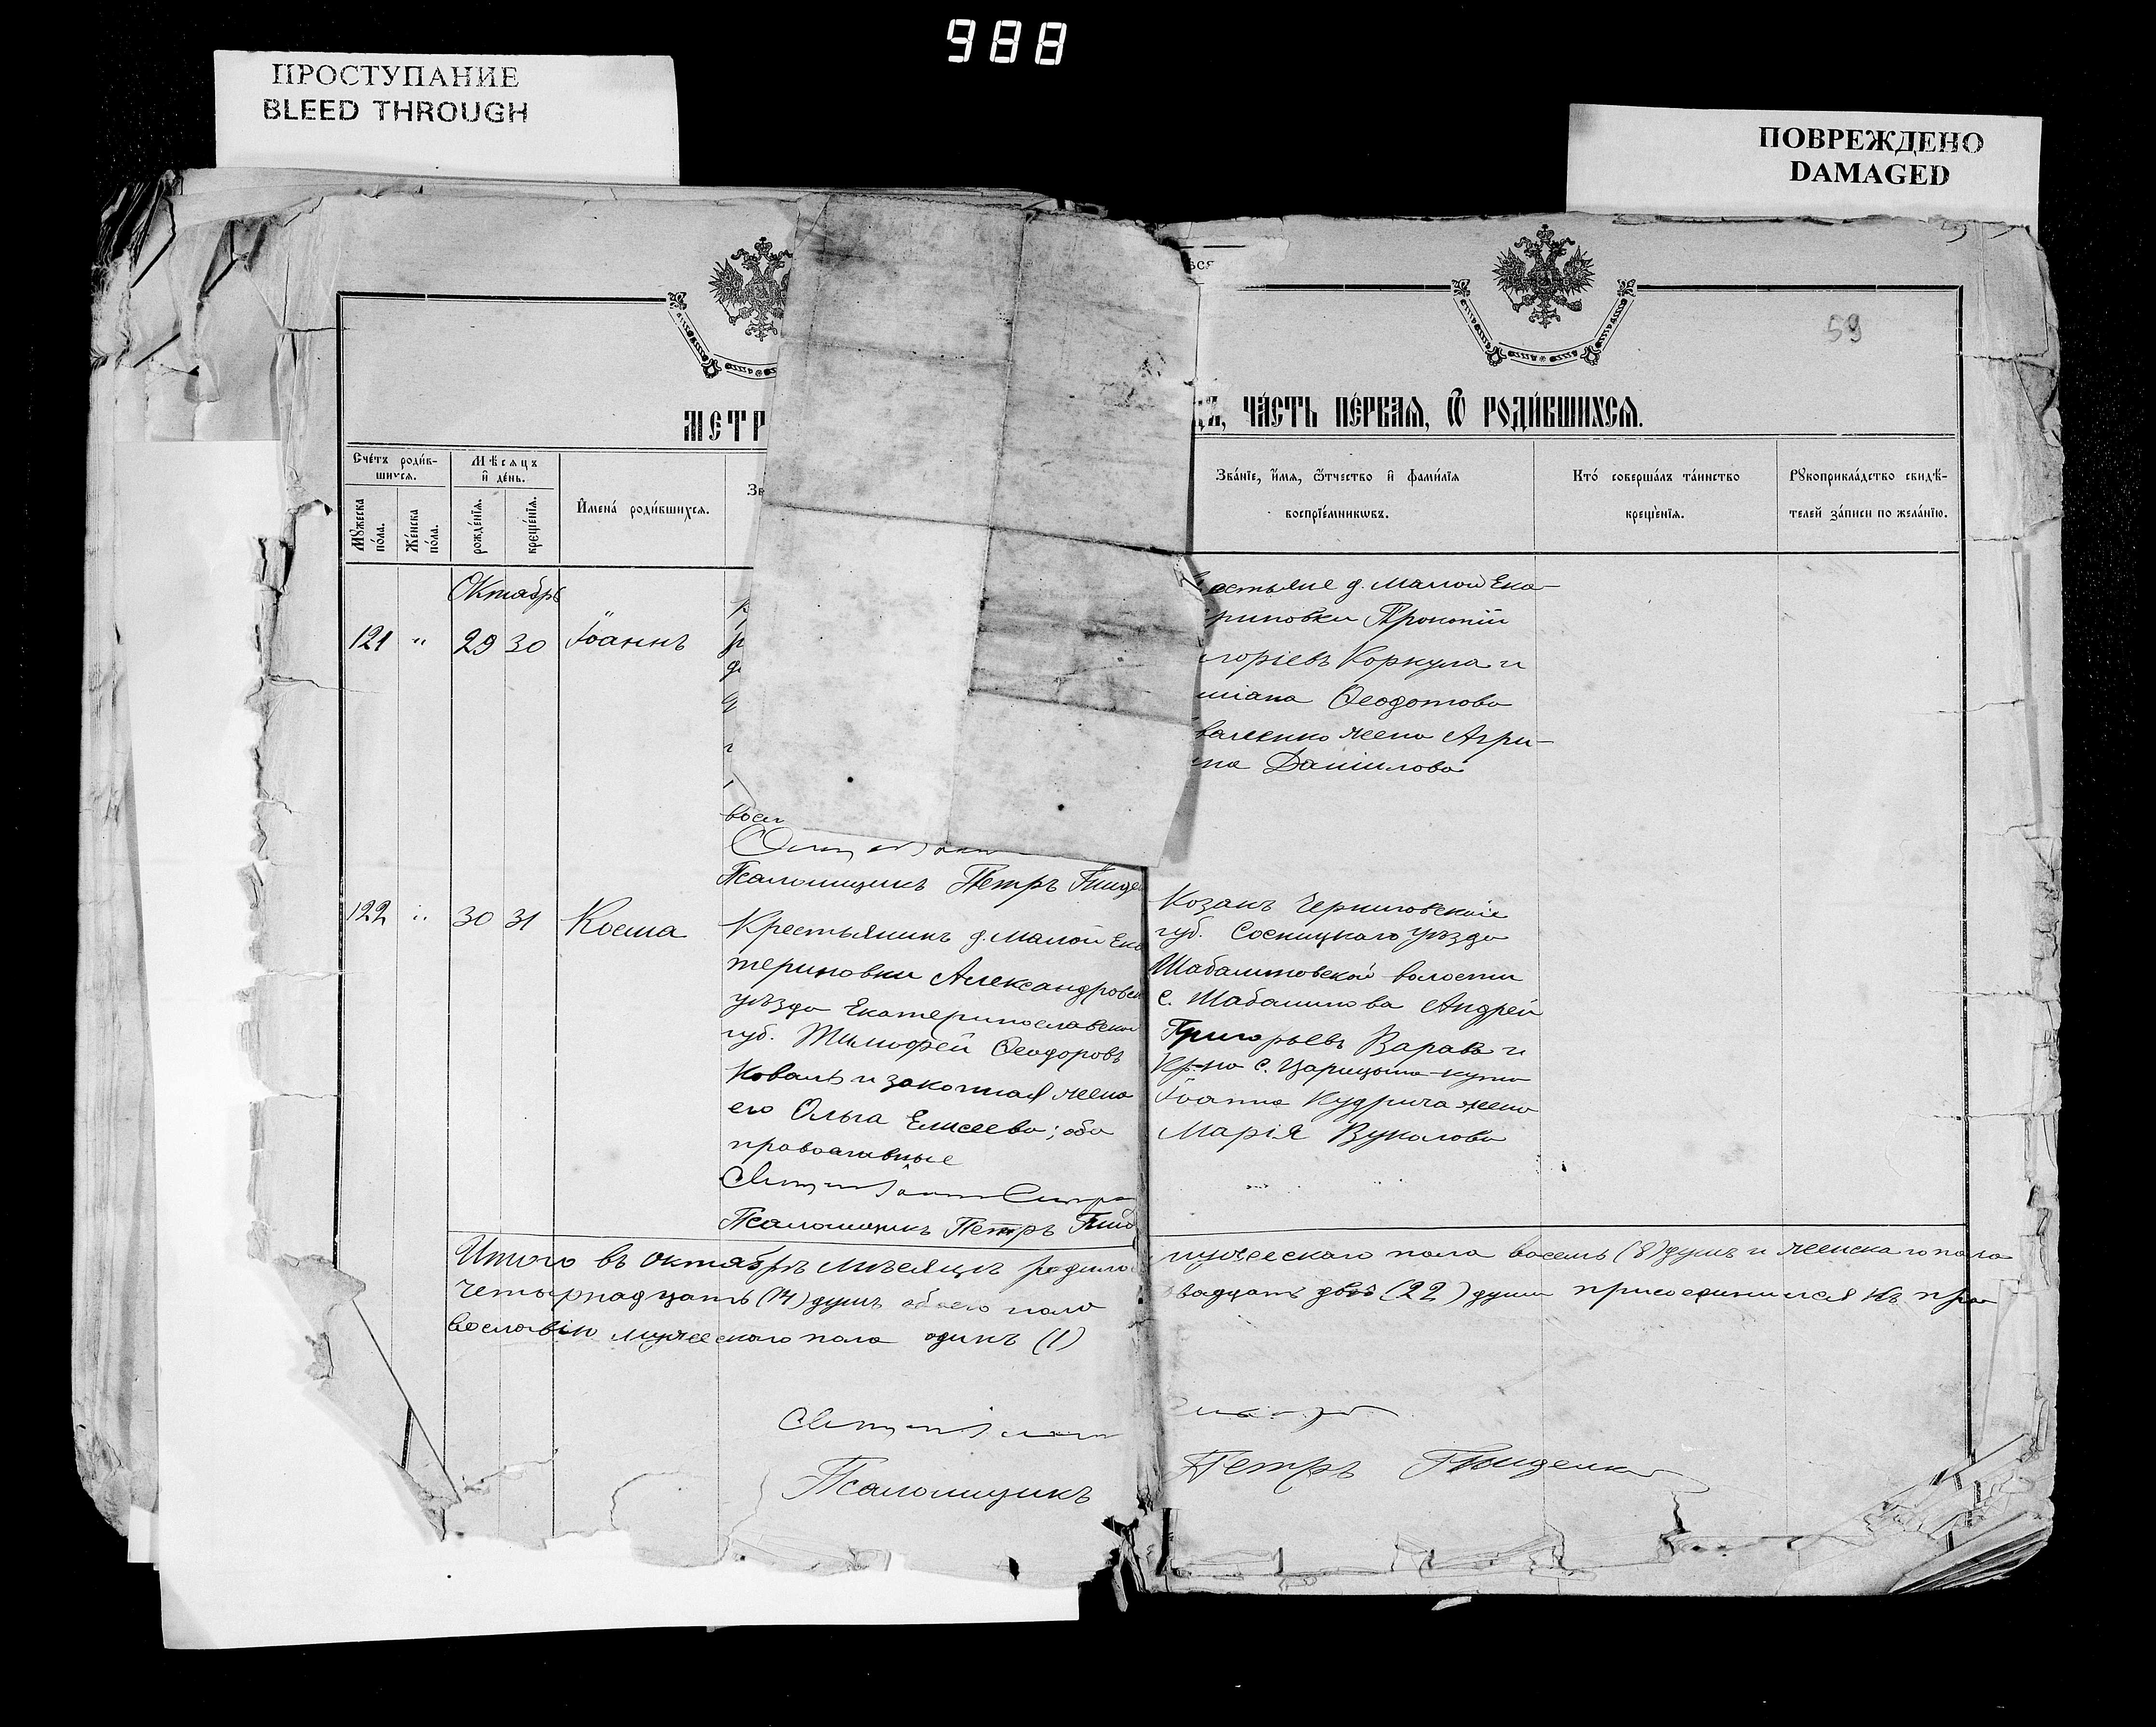 988
ПРОСТУПАНИЕ
BLEED THROUGH
ПОВРЕЖДЕНО
DAMAGED
59
МЕТР
ЧА́СТЬ ПЕ́РВАЯ, Ѿ РОДИ́ВШИХСЯ.
Сче́тъ роди́в-
шихся.
Мѣ́сяцъ
и҆ де́нь.
Мꙋ́жеска по́ла.
Же́нска по́ла.
рожде́нїя.
креще́нїя.
И҆мена̀ роди́вшихся.
Зв
Зва́нїе, и҆́мя, ѻ҆́тчество и҆ фами́лїя
воспрїе́мникѡвъ.
Кто̀ соверша́лъ та́инство
креще́нїя.
Рꙋкоприкла́дство свидѣ́-
телей за́писи по жела́нїю.
Октябрь
121 " 29 30 Іоаннъ
естьяне д. Малой Ека-
риновки Прокопій
горіевъ Коркула и
Ѳеодотова
валенко жена Агри-
на Даніилова
Псаломщикъ Петръ
122 " 30 31 Косма
Крестьянинъ д. Малой Ека
териновки Александровск
уѣзда Екатеринославской
губ. Тимофей Ѳеодоровъ
Коваль и законная жена
его Ольга Елисеева; оба
православные
Псаломщикъ Петръ
Козакъ Черниговской
губ. Сосницкаго уѣзда
Шабалиновской волости
с. Шабалинова Андрей
Григорьевъ Варава и
Кр-на с. Царицына-кута
Іоанна Кудрича жена
Марія Вуколова
Итого въ октябрѣ мѣсяцѣ родило мужескаго пола восемь (8) душъ и женскаго пола
четырнадцать (14) душъ обоего пола вадцать двѣ (22) души присоединился къ пра
вославію мужескаго пола одинъ (1)
Псаломщикъ Петръ